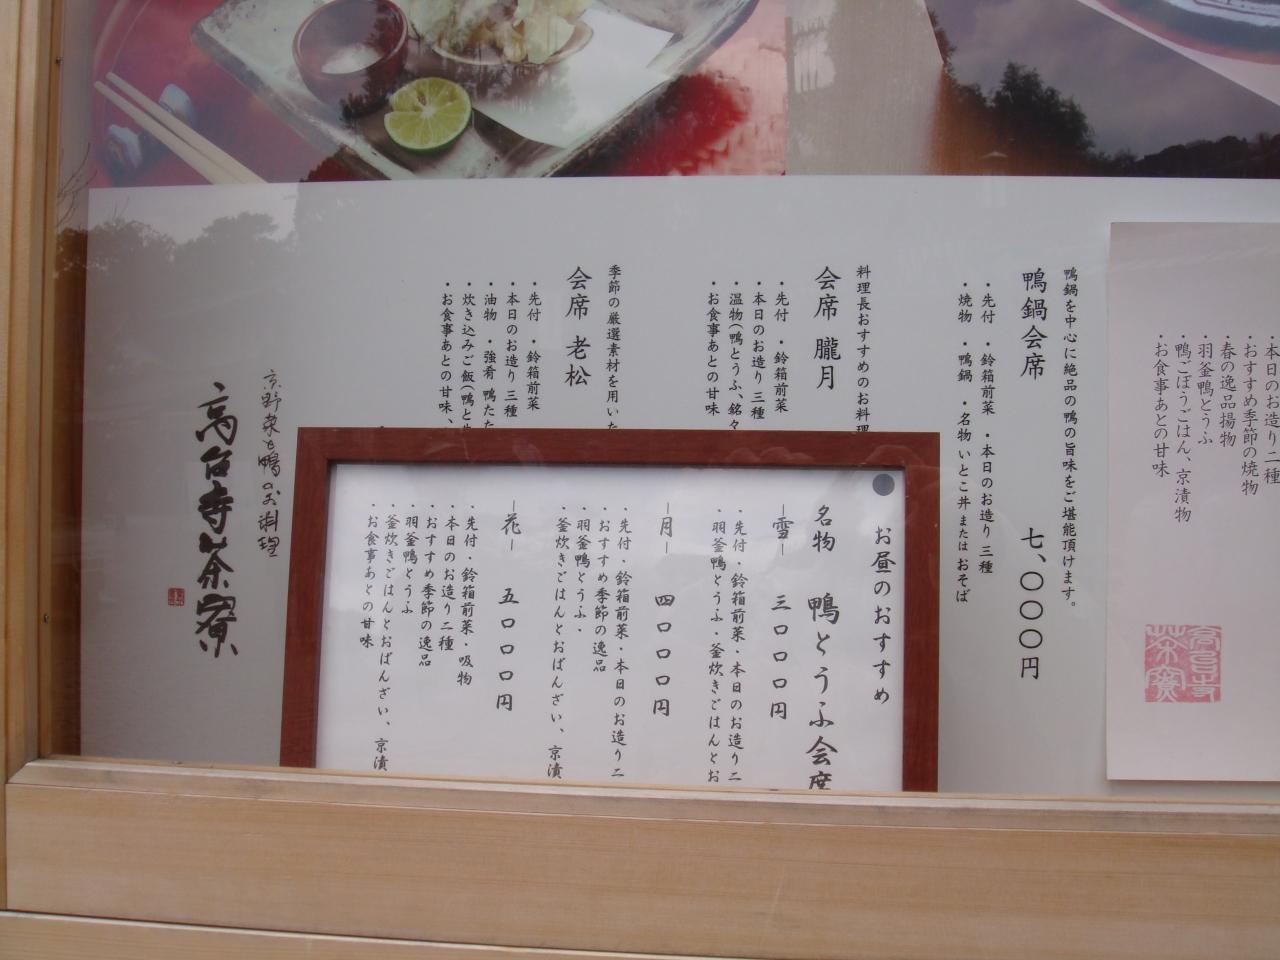 ・本日のお造り二種
・おすすめ季節の焼物
春の逸品揚物
・羽釜鴨とうふ
・鴨ごぼうごはん、京漬物
・お食事あとの甘味
鴨鍋を中心に絶品の鴨の旨味をご堪能頂けます。
鴨鍋会席 七、〇〇〇円
・先付 ・鈴箱前菜 ・本日のお造り 三種
・焼物 ・鴨鍋 ・名物いとこ丼 または おそば
料理長おすすめのお料理
会席 朧月
・先付 ・鈴箱前菜
・本日のお造り 三種
・温物(鴨とうふ、銘々
・お食事あとの甘味
季節の厳選素材を用いた
会席 老松
・先付 ・鈴箱前菜
・本日のお造り 三種
・油物 ・強肴 鴨た
・炊き込みご飯(鴨と
・お食事あとの甘味、
お昼のおすすめ
名物 鴨とうふ会席
―雪― 三〇〇〇円
・先付・鈴箱前菜・本日のお造り二
・羽釜鴨とうふ・釜炊きごはんとお
―月― 四〇〇〇円
・先付・鈴箱前菜・本日のお造り二
・おすすめ季節の逸品
・羽釜鴨とうふ・
・釜炊きごはんとおばんざい、京漬
―花― 五〇〇〇円
・先付・鈴箱前菜・吸物
・本日のお造り二種
・おすすめ季節の逸品
・羽釜鴨とうふ
・釜炊きごはんとおばんざい、京漬
・お食事あとの甘味
京野菜と鴨のお料理
高台寺茶寮
高台寺茶寮